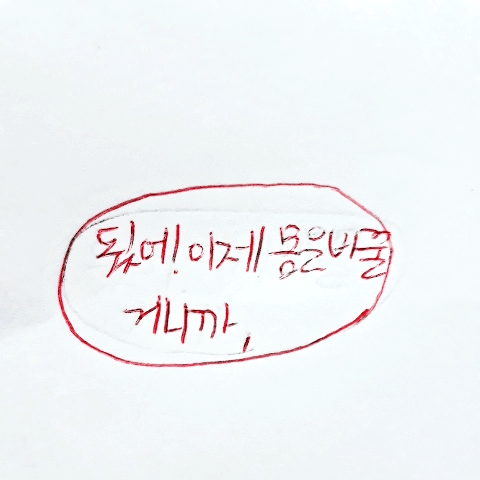 됬어! 이제 몸은 바꿀
거니까,